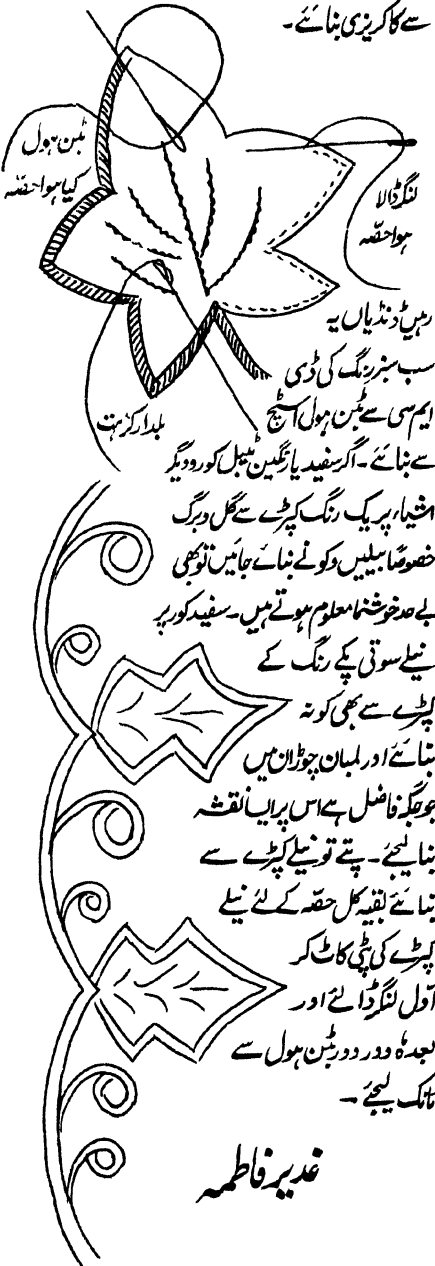 سے کاکریزی بنائے۔
بٹن ہول
کیا ہوا حصّہ
لنگر ڈالا
ہوا حصّہ
رہیں ڈنڈیاں یہ
سب سبز رنگ کی ڈی
ایم سی سے بٹن ہول اسٹیچ
بلدار کڑہت
سے بنائے۔ اگر سفید یا رنگین ٹیبل کور و دیگر
اشیاء پر یک رنگ کپڑے سے گل و برگ
خصوصاً بیلیں و کونے بنائے جائیں تو بھی
بے حد خوشنما معلوم ہوتے ہیں۔ سفید کور پر
نیلے سوتی پکے رنگ کے
کپڑے سے بھی کونہ
بنائے اور لمبان چوڑان میں
جو جگہ فاضل ہے اس پر ایسا نقشہ
بنا لیجئے۔ پتے تو نیلے کپڑے سے
بنائے بقیہ کل حصّہ کے لئے نیلے
کپڑے کی پٹی کاٹ کر
اول لنگر ڈالئے اور
بعدہٗ دور دور بٹن ہول سے
ٹانک لیجئے۔
غدیر فاطمہ